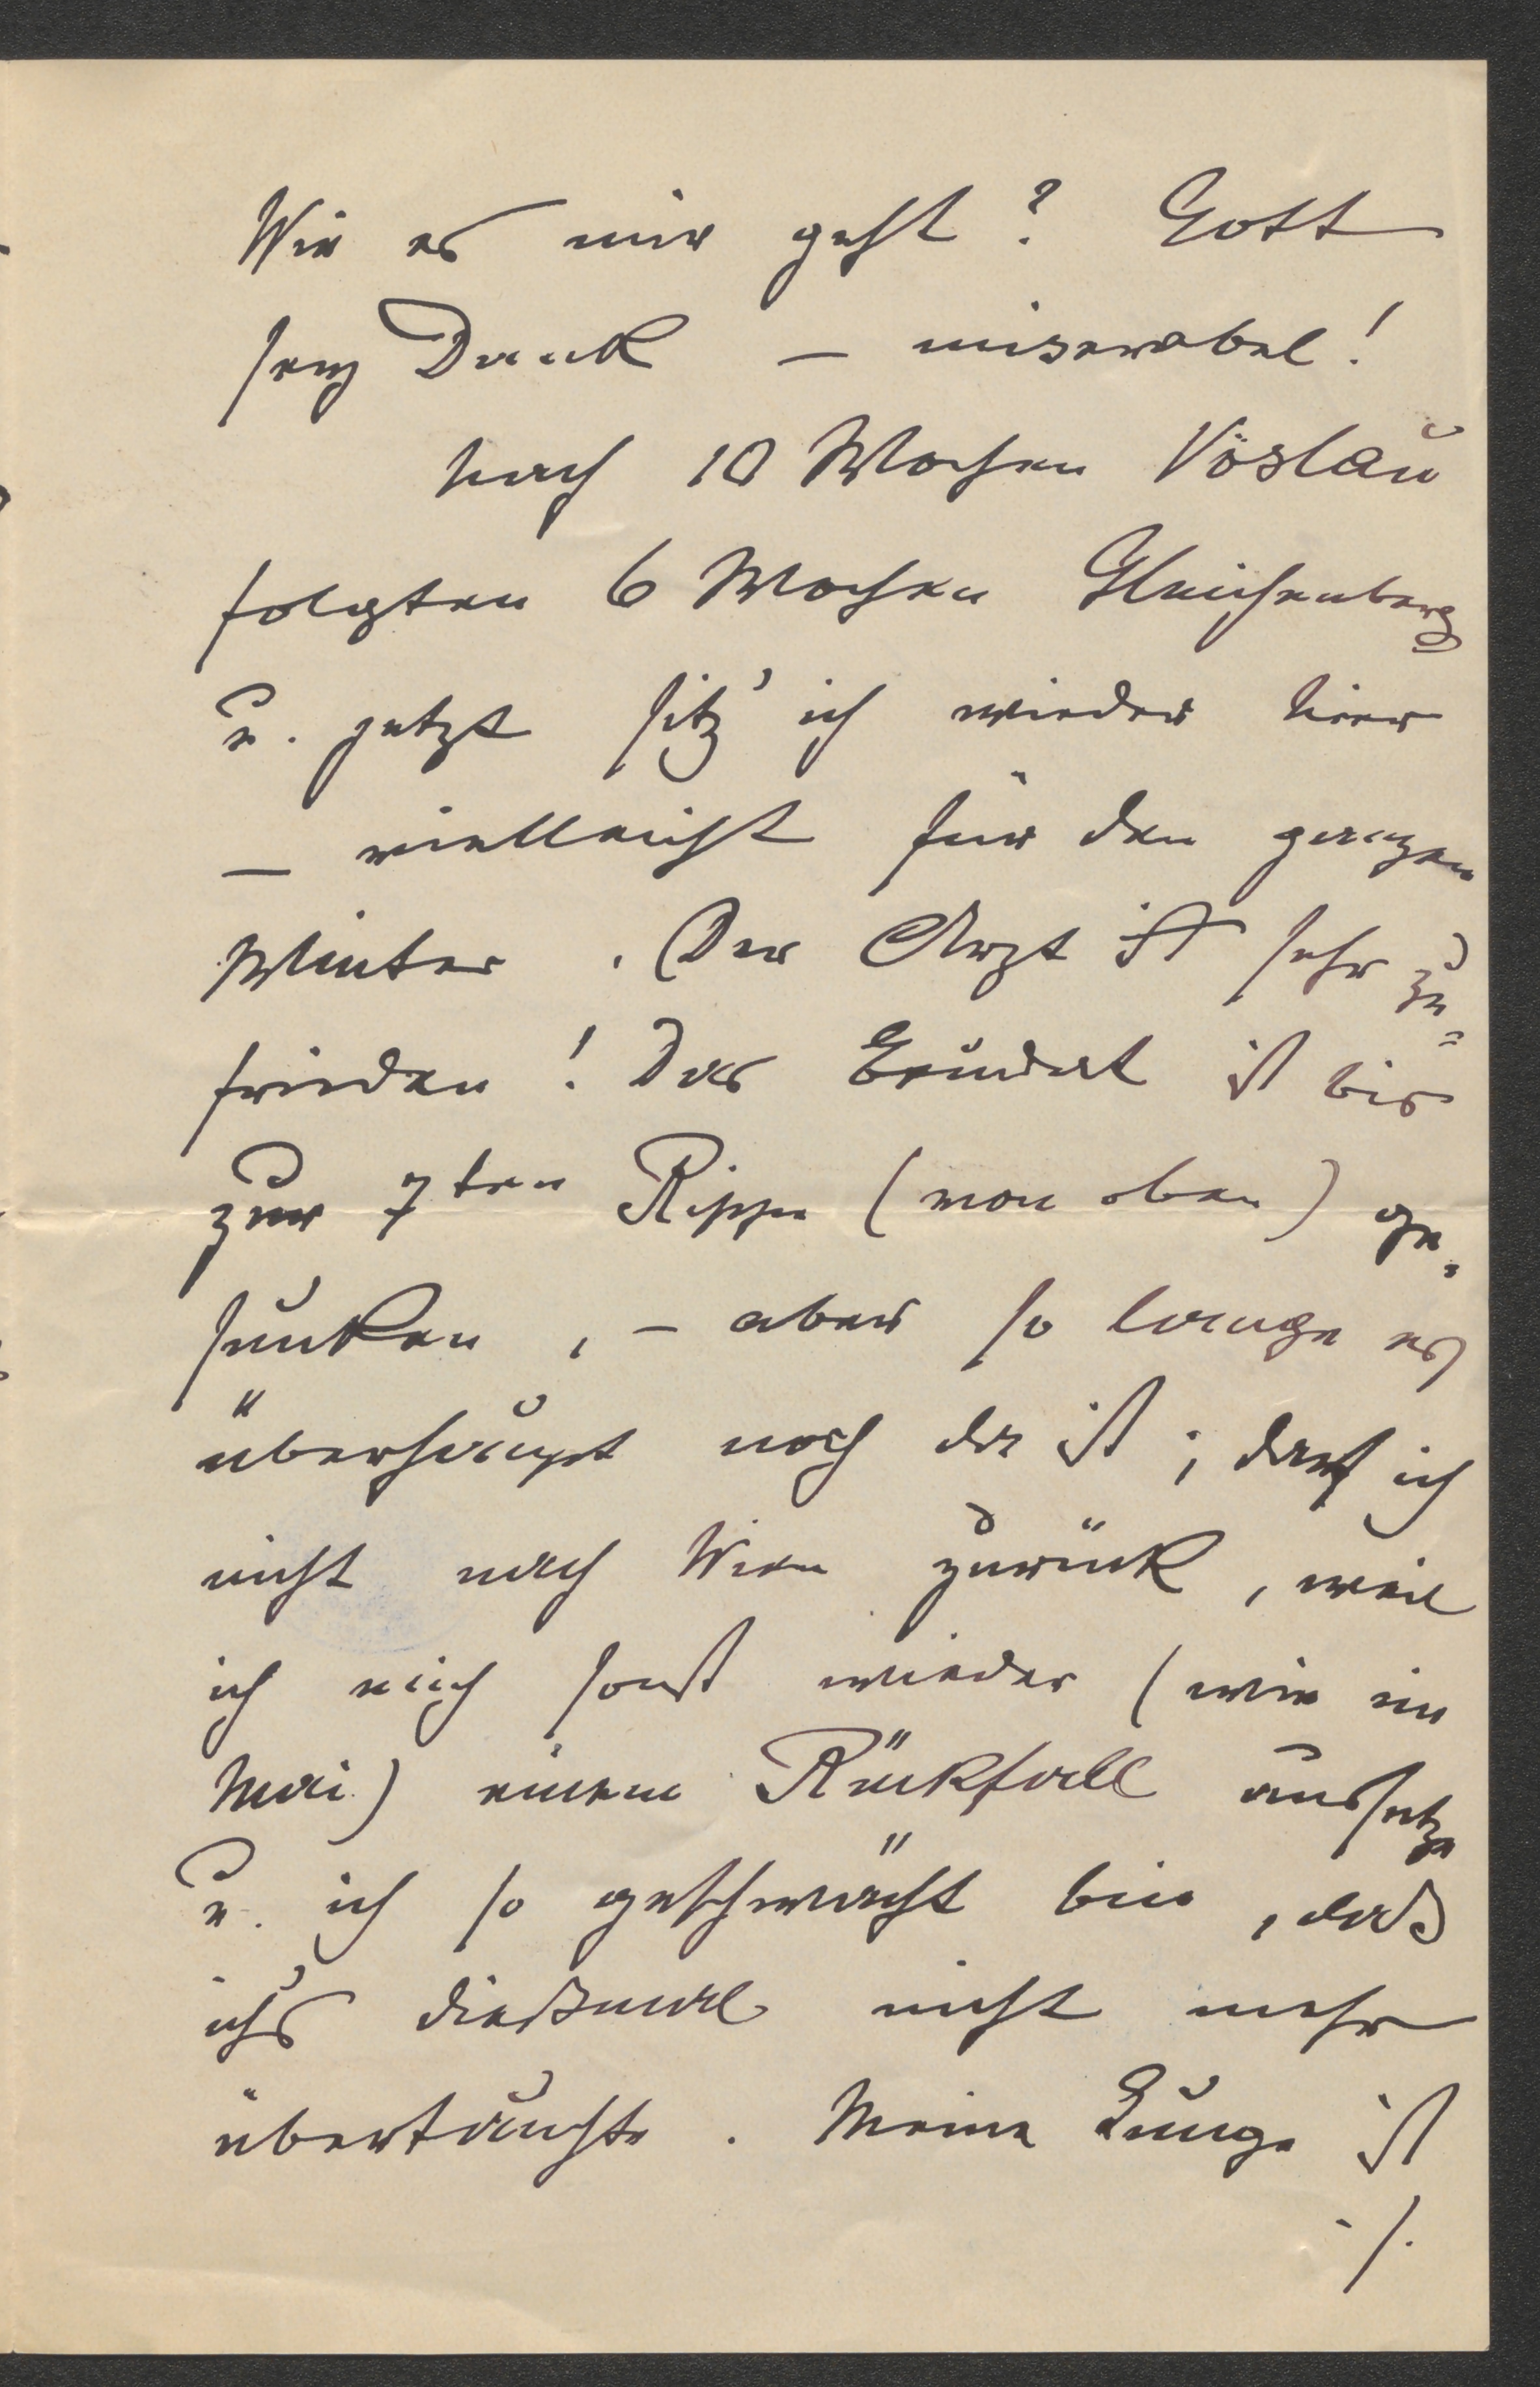 Wie es mir geht? Gott
sey Dank – miserabel!
Nach 10 Wochen Vöslau
folgten 6 Wochen Gleichenberg
u. jetzt sitz' ich wieder hier
– vielleicht für den ganzen
Winter. Der Arzt ist sehr zu=
frieden! Das Exudat ist bis
zur 7ten Rippe (von oben) ge=
sunken, – aber so lange es
überhaupt noch da ist; darf ich
nicht nach Wien zurück, weil
ich mich sonst wieder (wie im
Mai) einem Rückfall aussetze
u. ich so geschwächt bin, daß
ich's dießmal nicht mehr
übertauchte. Meine Lunge ist
./.